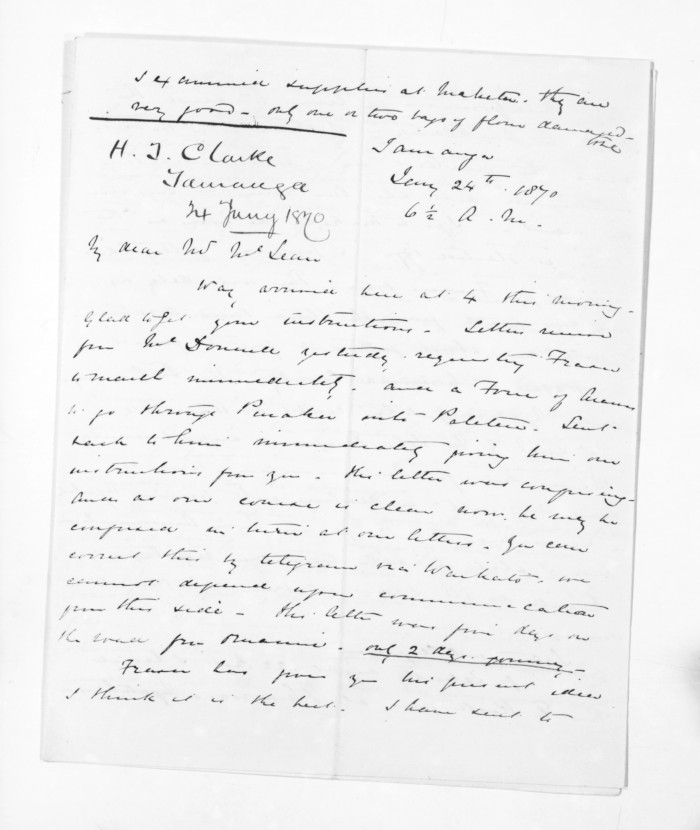 I examined supplies at Maketu. They are
very good - only one or two bags of flour damaged
H. T. Clarke
Tauranga
24 Jany 1870
Tauranga
Jany 24th. 1870
6½ A.M.
My dear Mr McLean
Way arrived here at 4 this morning.
Glad to get your instructions. Letters received
from McDonnell yesterday requesting Fraser
to march immediately. and a Force of Arawas
to go through                into Patetere. Sent
back to him immediately giving him our
instructions from you. His letter was confusing
and as our course is clear now he may be
confused in turn at our letters. You can
correct this by telegram via Waikato. we
cannot depend upon communication
from this side - His letter was five days on
the road from              . only 2 days journey -
Fraser has given you his present ideas
I think it is the best. I have sent to